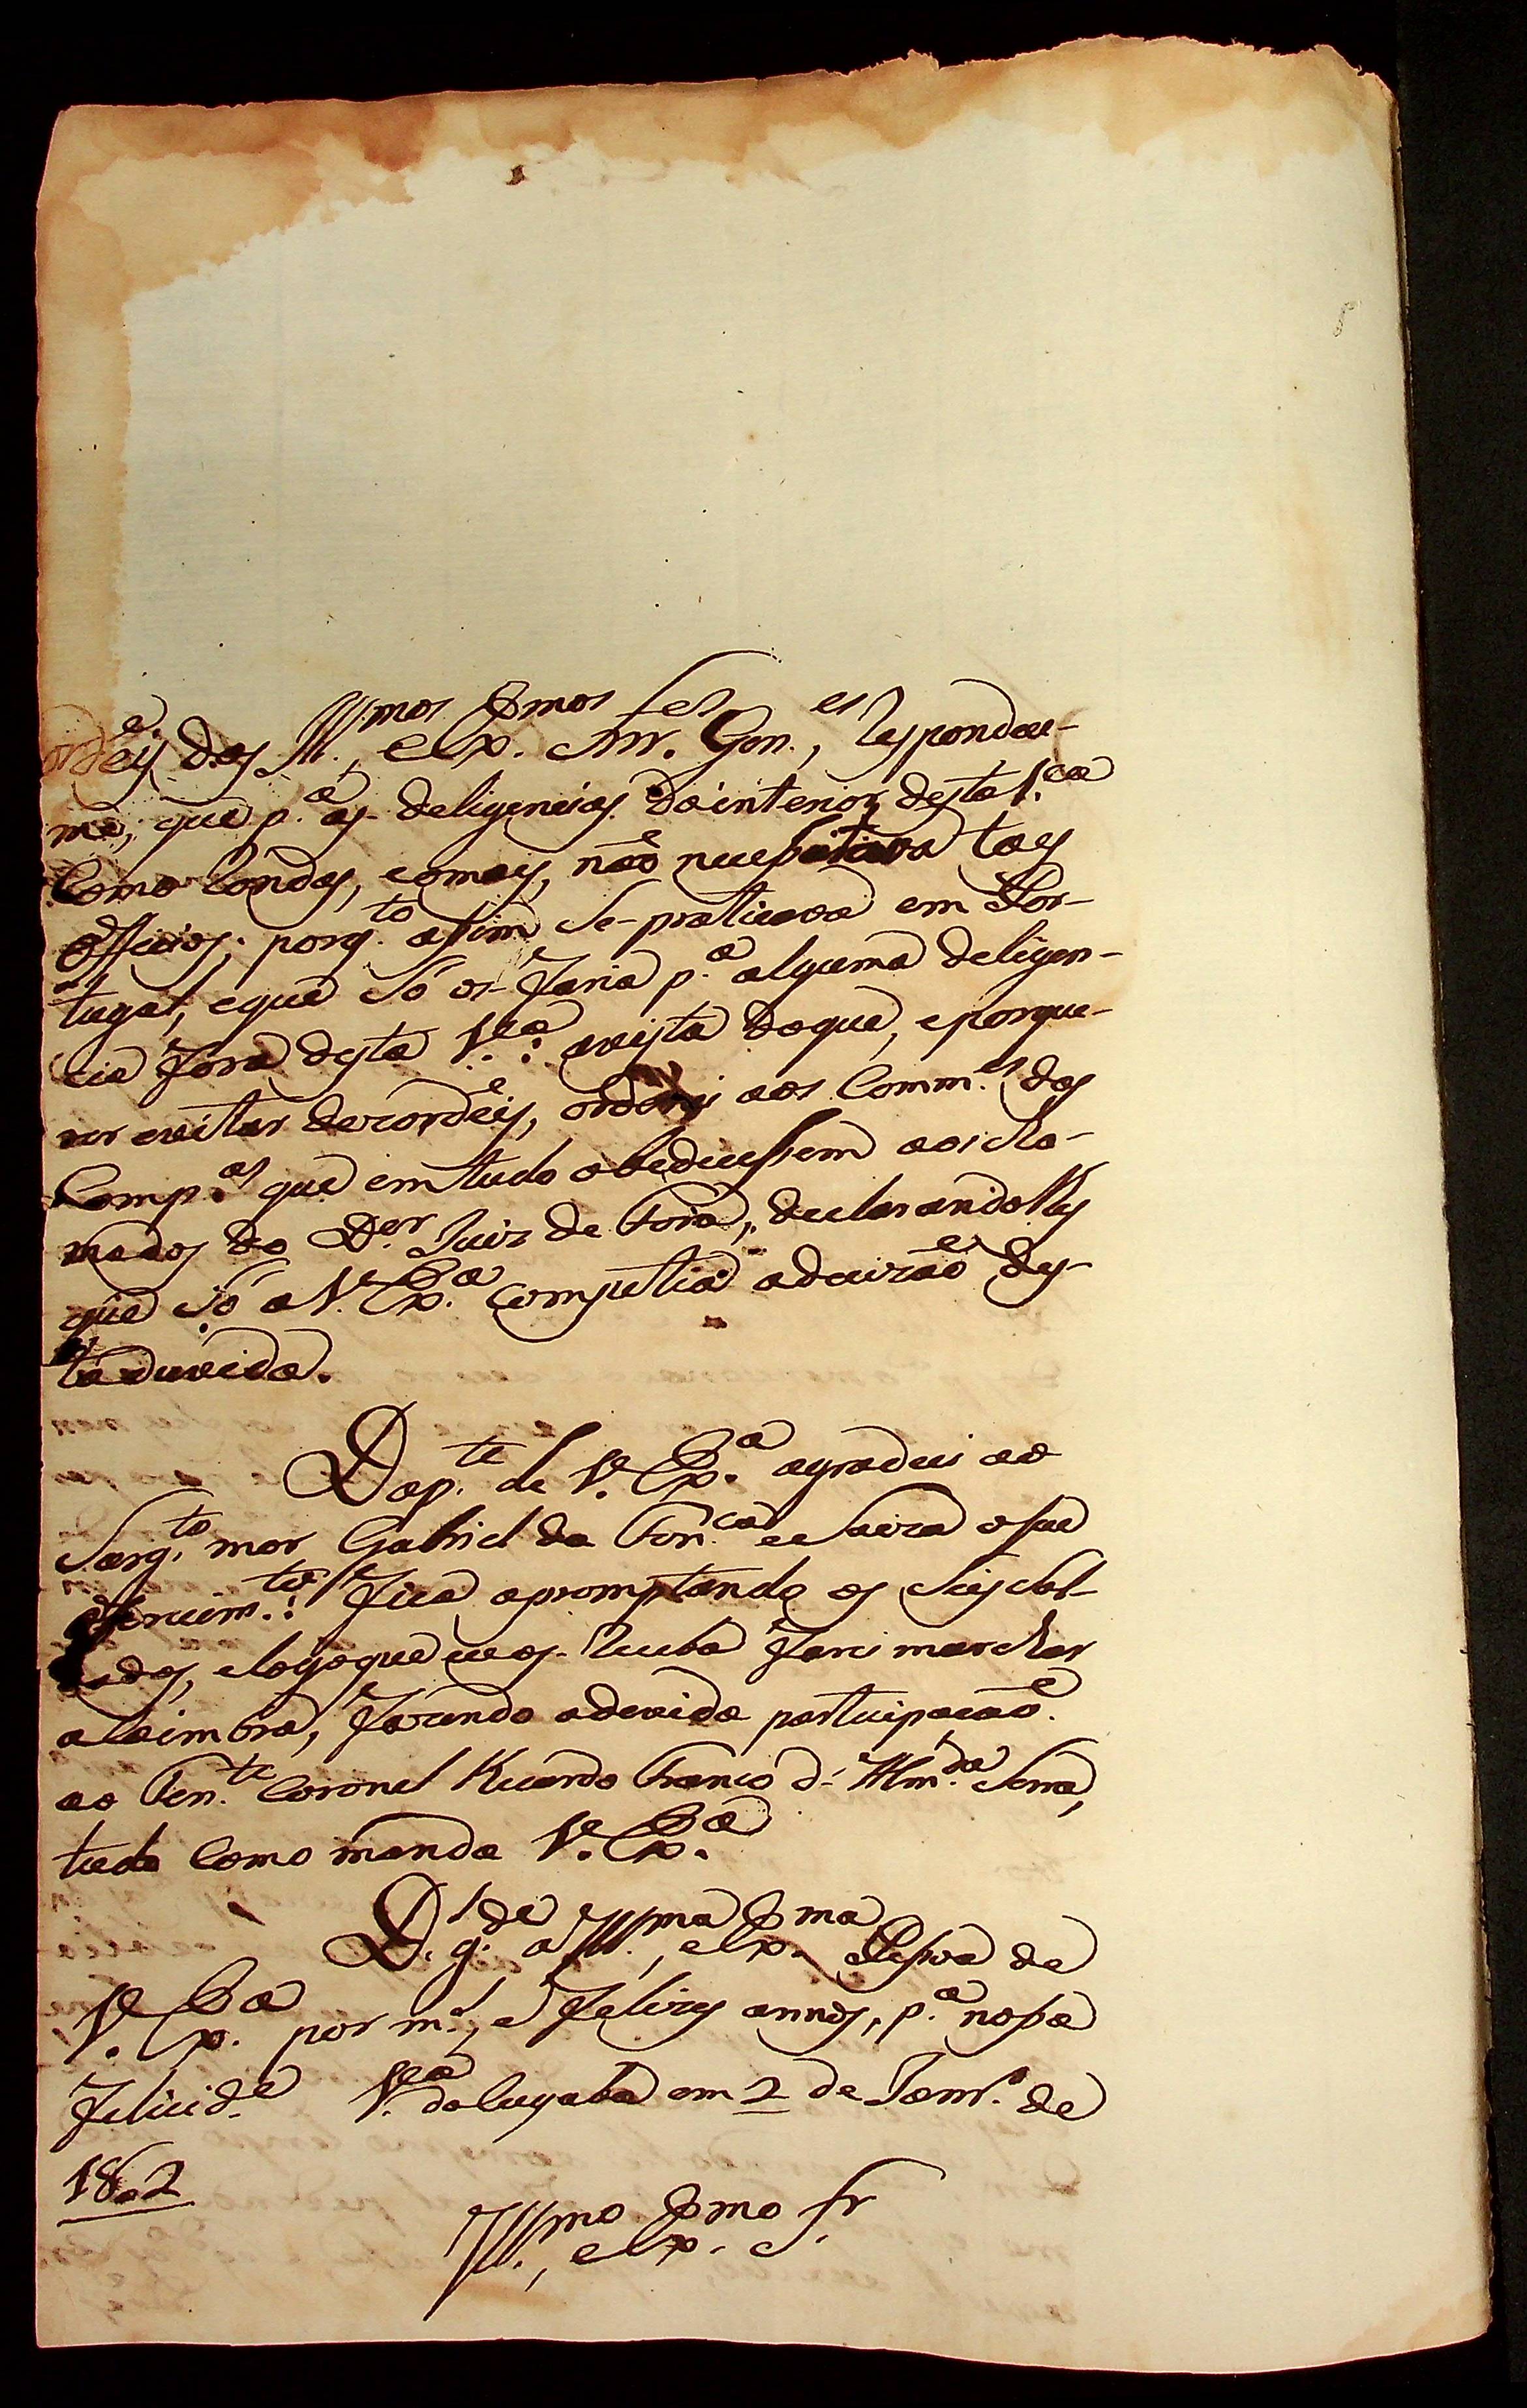 ordẽis dos Ill.mos, e Ex.mos Snr.es Gen.es, respondeu-
me, que p.a as deligencias do interior desta V.ca
como Rondas, e mais, não necessitava taes
Officios; porq.to assim se-praticava em Por-
tugal, eque só os-faria p.a alguma deligen-
cia fora desta V.a: avista doque, eporque-
rer evitar decordẽis, ordenei aos Comm.es das
Comp.as que emtudo obedecessem aos cha-
mados do D.or Juiz de Fora, declarandolhes
que só a V. Ex.a competia adecizão des-
taduvida.
Dap.te de V. Ex.a agradeci ao
Sarg.to mor Gabriel da Fon.ca e Souza oseu
offerecim.to: fica apromptando os seis Sol-
dados, elogoque eu os-receba farei marchar
aCoimbra, fazendo adevida participação
ao Ten.te Coronel Ricardo Franco d'Alm.da Serra,
tudo como manda V. Ex.a
D.s g.de a Ill.ma, e Ex.ma Pessoa de
V. Ex.a por m.s, e felizes annos, p.a nossa
felicid.e V.a do Cuyabá em 2 de Janr.o de
1802
Ill.mo, e Ex.mo Sr.